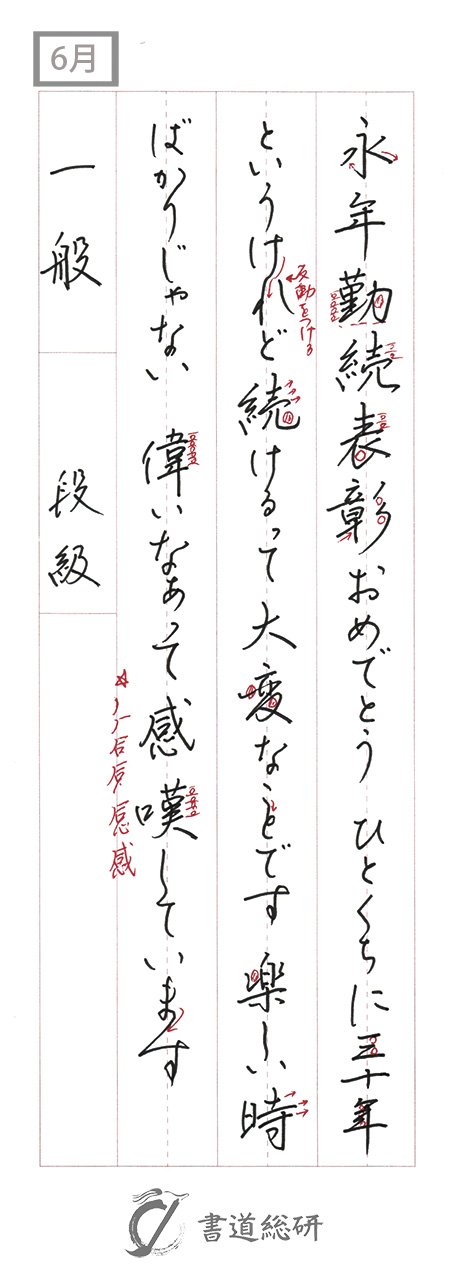 6月
永年勤続表彰おめでとう ひとくちに三十年
というけれど続けるって大変なことです 楽しい時
ばかりじゃない 偉いなあって感嘆しています
反動をつける
一般
段級
書道総研